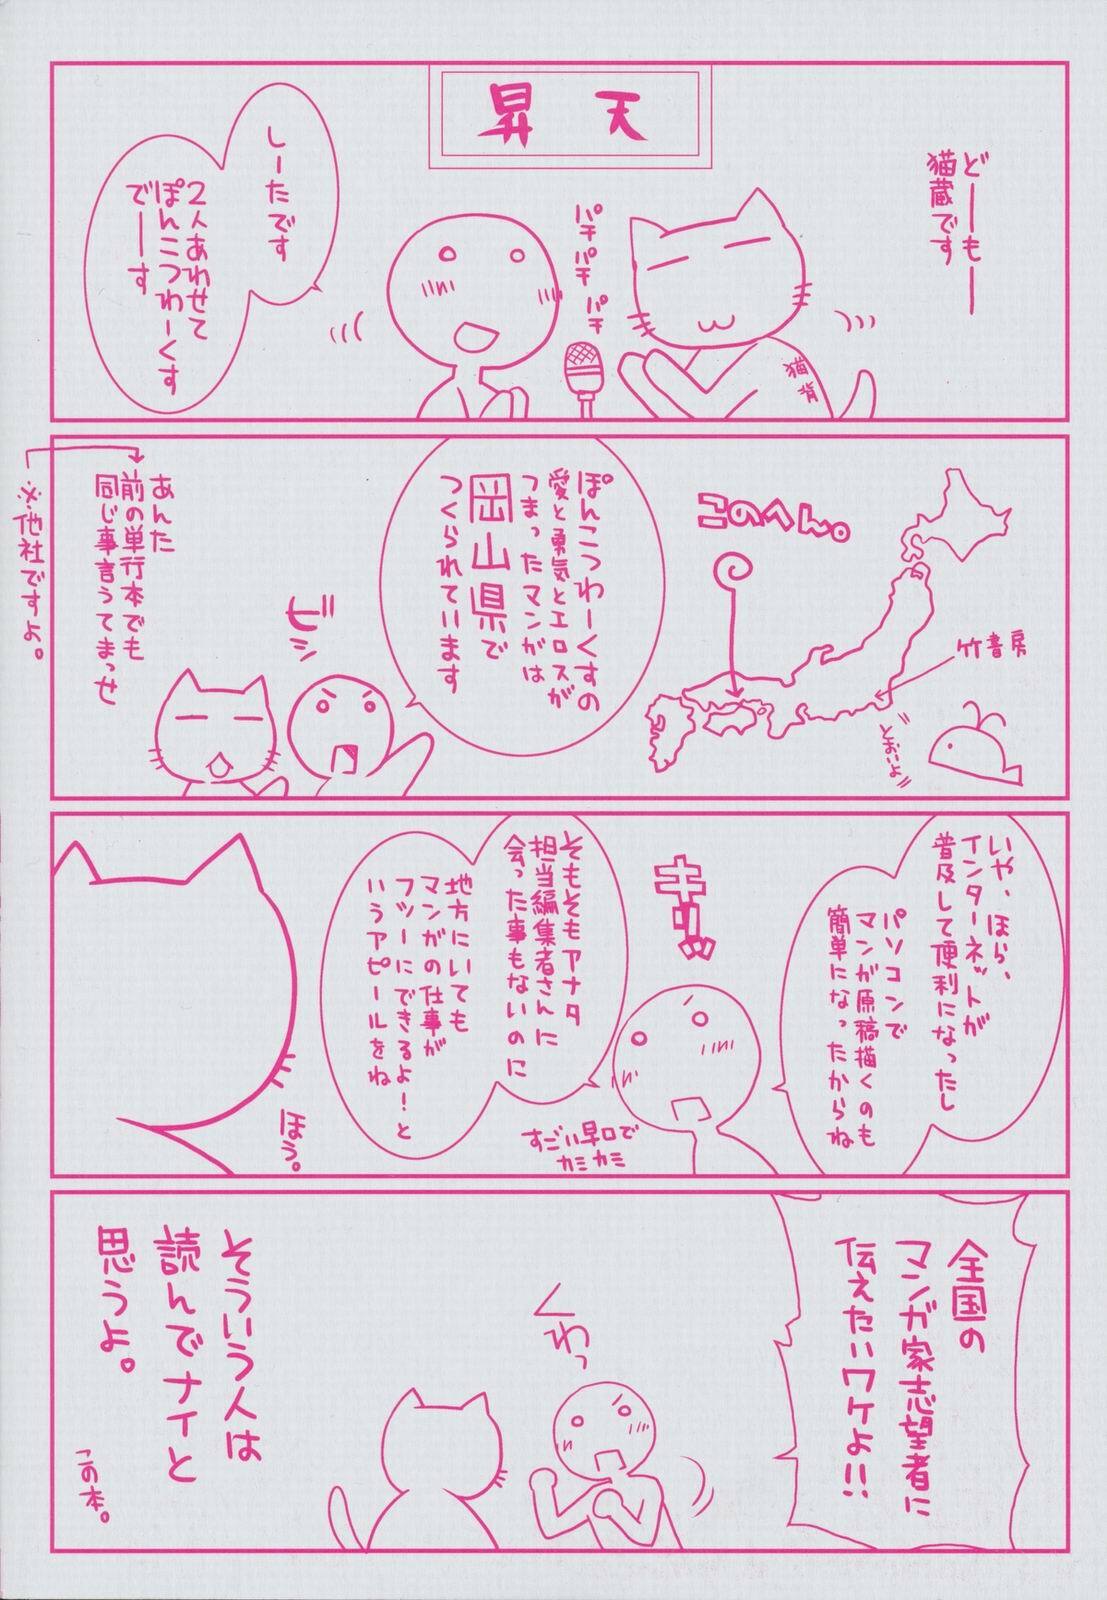 昇天
どーもー
猫蔵です
パチ
パチ
パチ
猫背
しーたです
2人あわせて
ぽんこつわーくす
でーす
このへん。
竹書房
とおいよ
ぽんこつわーくすの
愛と勇気とエロスが
つまったマンガは
岡山県で
つくられています
ビシ
あんた
前の単行本でも
同じ事言うてまっせ
※他社ですよ。
いや、ほら、
インターネットが
普及して便利になったし
パソコンで
マンガ原稿描くのも
簡単になったからね
キリッ
すごい早口で
カミカミ
そもそもアナタ
担当編集者さんに
会った事もないのに
地方にいても
マンガの仕事が
フツーにできるよ!と
いうアピールをね
ほう。
全国の
マンガ家志望者に
伝えたいワケよ!!
くわっ
そういう人は
読んでナイと
思うよ。
この本。